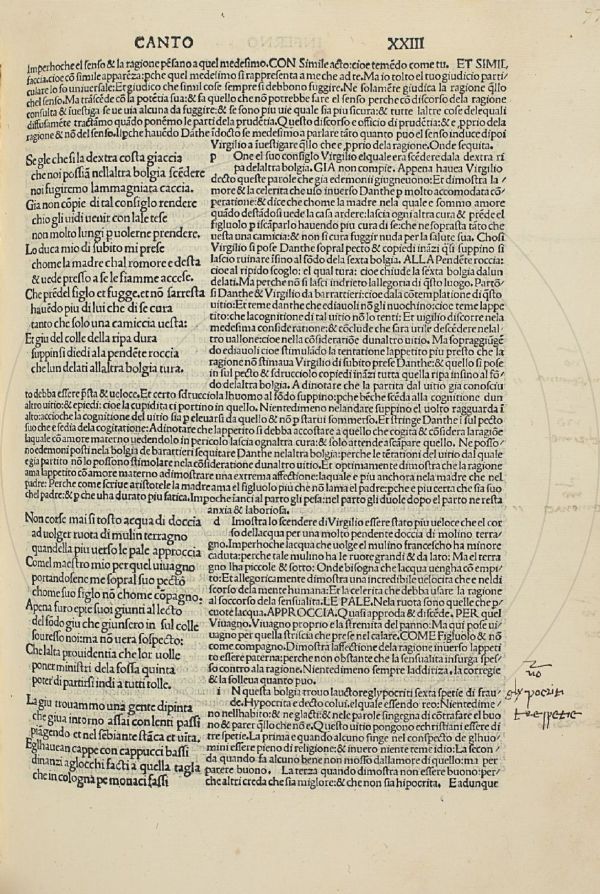 CANTO XXIII
Imperhoche el senso & la ragione pēsano a quel medesimo. CON Simile acto: cioe temēdo come tu. ET SIMIL
faccia. cioe cō simile apparēza: pche quel medesimo si rappresenta a me che ad te. Ma io tolto el tuo giudicio parti/
culare lo fo uniuersale: Et giudico che simil cose sempre si debbono fuggire. Ne solamēte giudica la ragione q̄llo
chel senso. Ma trāscēde cō la potētia sua: & fa quello che nō potrebbe fare el senso perche cō discorso della ragione
consulta & īuestiga se ue uia alcuna da fuggire: & se sono piu uie quale sia piu sicura: & tutte laltre cose delequali
diffusamēte tractamo quādo ponēmo le parti della prudētia. Questo discorso e officio di prudētia: & e pprio della
ragione & nō del senso. Ilpche hauēdo Dāthe īdocto se medesimo a parlare tāto quanto puo el senso induce dipoi
Virgilio a īuestigare q̄llo che e pprio della ragione. Onde sequita.
Se gle che si la dextra costa giaccia
che noi possiā nellaltra bolgia scēdere
noi fugiremo lammagniata caccia.
Gia non cōpie di tal consiglo rendere
chio gli uidi uenir con lale tese
non molto lungi p uolerne prendere.
Lo duca mio di subito mi prese
chome la madre chal romore e desta
& uede presso a se le fiamme accese.
Che prēdel figlo et fugge. et nō sarresta
hauēdo piu di lui che di se cura
tanto che solo una camiccia uesta:
Et giu del colle della ripa dura
suppin si diedi ala pendēte roccia
che lun delati allaltra bolgia tura.
p One el suo consiglo Virgilio elquale era scēdere dala dextra ri
pa delaltra bolgia. GIA non compie. Appena hauea Virgilio
decto queste parole che gia edemonii giugnetono: Et dimostra la
more & la celerita che uso inuerso Danthe p molto accomodata cō/
peratione: & dice che chome la madre nela quale e sommo amore
quādo destādosi uede la casa ardere: lascia ogni altra cura & prēde el
figliuolo p iscāparlo hauendo piu cura di se: che ne sopratta tāto che
uesta una camicia: & non si cura fuggir nuda per la salute sua. Chosi
Virgilio si pose Danthe sopral pecto & co piedi īnazi q̄si suppino si
lascio ruinare īsino al fōdo dela sexta bolgia. ALLA Pendēte roccia:
cioe al ripido scoglo: el qual tura: cioe chiude la sexta bolgia da lun
delati. Ma perche nō si lasci indrieto lallegoria di q̄sto luogo. Partō
si Danthe & Virgilio da barattieri: cioe dala cōtemplatione di q̄sto
uitio: Et teme danthe che ediauoli nō gli nuochino: cioe teme lappe
tito: che la cognitione di tal uitio nō lo tenti: Et uirgilio discorre nela
medesima consideratione: & cōclude che sara utile descēdere nelal
tro uallone: cioe nella cōsideratiōe dunaltro uitio. Ma sopraggiūgē
do ediauoli cioe stimulādo la tentatione lappetito piu presto che la
ragione nō stimaua Virgilio di subito prese Danthe: & quello si pose
in sul pecto & sdrucciolo co piedi inazi tutta quella ripa insino al fō/
do delaltra bolgia. A dinotare che la partita dal uitio gia conosciu
to debba essere p̄sta & ueloce. Et certo sdrucciola lhuomo al fōdo suppino: pche bēche scēda alla cognitione dun
altro uitio: & epiedi: cioe la cupidita ci portino in quello. Nientedimeno nelandare suppino el uolto ragguarda ī
alto: accioche la cognitione del uitio sia p eleuarsi da quello & nō p starui sommerso. Et stringe Danthe ī sul pecto
suo che e sedia dela cogitatione: A dinotare che lappetito si debba accostare a quello che cogita & cōsidera la ragiōe
laquale cō amore materno uedendolo in pericolo lascia ognaltra cura: & solo attende a scāpare quello. Ne posso/
no edemoni posti nela bolgia de barattieri sequitare Danthe nelaltra bolgia: perche le tētationi del uitio dal quale
e gia partito nō lo possono stimolare nela cōsideratione dunaltro uitio. Et optimamente dimostra che la ragione
ama lappetito cō amore materno ad dimostrare una extrema affectione: laquale e piu anchora nela madre che nel
padre: Perche come scriue aristotele la madre ama el figluolo piu che nō lama el padre: pche e piu certa che sia suo
chel padre: & p che uha durato piu fatica. Impoche īanci al parto gli pesa: nel parto gli duole dopo el parto ne resta
anxia & laboriosa.
Non corse mai si tosto acqua di doccia
ad uolger ruota di mulin terragno
quandella piu uerso le pale approccia
Comel maestro mio per quel uiuagno
portandosene me sopral suo pecto
chome suo figlo nō chome cōpagno:
Apena furo epie suoi giunti al lecto
del fōdo giu che giunsero in sul colle
souresso noi: ma nō uera sospecto:
Che lalta prouidentia che lor uolle
poner ministri dela fossa quinta
poter di partirsi indi a tutti tolle.
La giu trouammo una gente dipinta
che giua intorno assai con lenti passi
piāgendo et nel sēbiante stāca et uīta.
Eglhauean cappe con cappucci bassi
dinanzi aglocchi facti a quella tagla
che in cologna pe monaci fassi
d Imostra lo scendere di Virgilio essere stato piu ueloce che el cor
so dellacqua per una molto pendente doccia di molino terra/
gno. Imperhoche lacqua che uolge el mulino francescho ha minore
caduta: perche tale mulino ha le ruote grandi & da lato: Ma el terra
gno lha piccole & sotto: Onde bisogna che lacqua uengha cō empi/
to: Et allegoricamente dimostra una incredibile uelocita che e nel di
scorso dela mente humana: Et la celerita che debba usare la ragione
al soccorso dela sensualita. LE PALE. Nela ruota sono quelle che p/
cuote lacqua. APPROCCIA. Quasi approda & discēde. PER quel
Viuagno. Viuagno proprio e la stremita del panno: Ma qui pose ui
uagno per quella striscia che prese nel calare. COME Figluolo & nō
come compagno. Dimostra laffectione dela ragione inuerso lappeti
to essere paterna: perche non obstante che la sensualita insurga spes/
so contro ala ragione. Nientedimeno sempre ladditiza. la corregie
& la solleua quanto puo.
i N questa bolgia trouo lauctore glypocriti sexta spetie di frau/
de. Hypocrita e decto colui. el quale essendo reo: Nientedime/
no nellhabito: & ne glacti: & nele parole singegna di cōtrafare el buo
no & parer q̄llo che nō e. Questo uitio pongono echristiani essere di
tre spetie. La prima e quando alcuno singe nel conspecto de glhuo/
mini essere pieno di religione: & inuero niente teme idio: La secon/
da quando fa alcuno bene non mosso dallamore di quello: ma per
parere buono. La terza quando dimostra non essere buono: per/
che altri creda che sia miglore: & che non sia hipocrita. E adunque
glypocriti
tre spetie